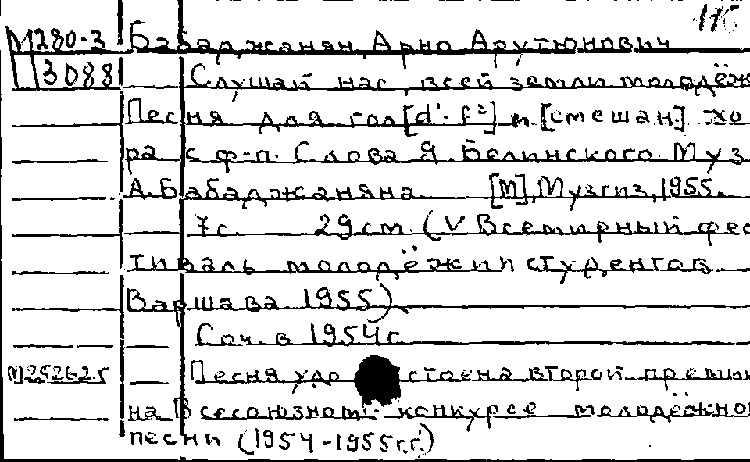 М280-3 Бабаджанян, Арно Арутюнович
13088 Слушай нас, всей земли молодёж
Песня для гол[d¹-f²] и [смешан] хо
ра с ф-п. Слова Я. Белинского Муз
А. Бабаджаняна. [М], Музгиз, 1955.
7с. 29см. (V Всемирный фес
тиваль молодёжи и студентов
Варшава 1955).
Соч. в 1954г
М2526-25 Песня удо стоена второй преми
на Всесоюзном конкурсе молодёжно
песни (1954-1955гг.)